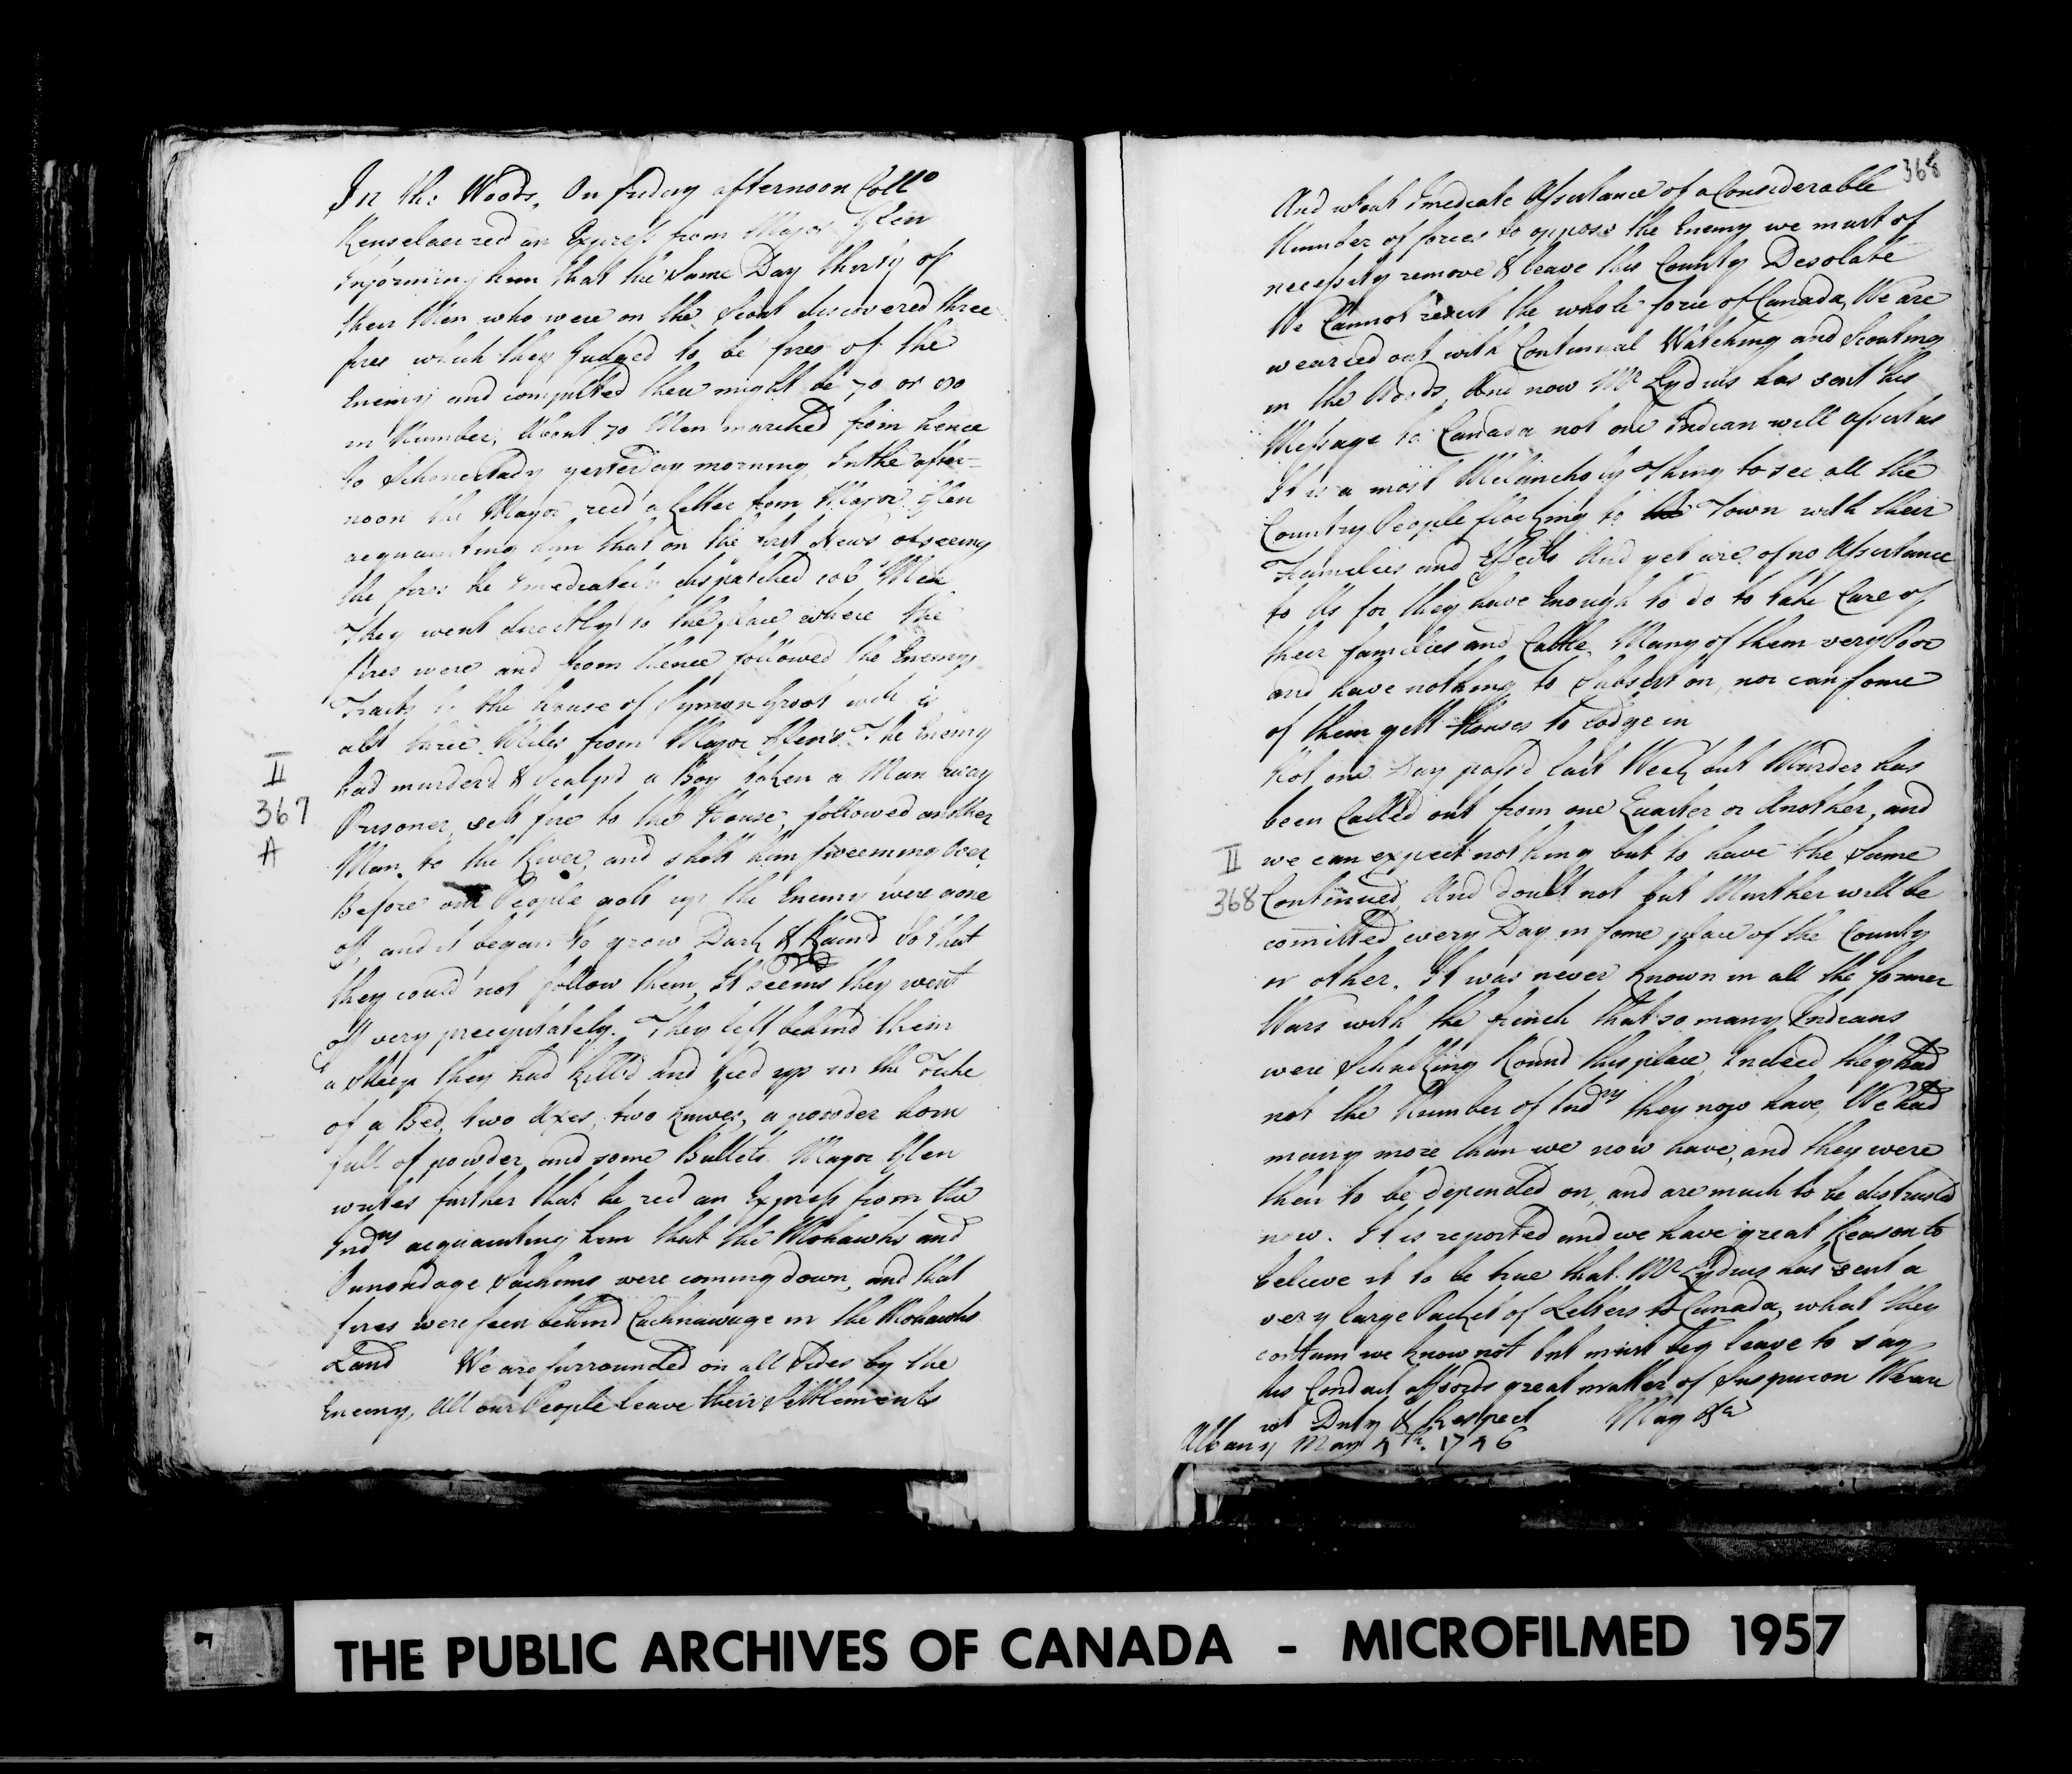 In the Woods, On friday afternoon Coll.o
Renselaer recd an Express from Major Glen
Informing him that the Same Day thirty of
their Men who were on the Scout discovered three
fires which they Judged to be fires of the
Enemy and computed there might be 70 or 80
in Number, About 70 Men marched from hence
to Schonectady yesterday morning, In the after-
noon the Mayor recd a Letter from Major Glen
acquainting him that on the first News of seeing
the fires he Imediately dispatched 106 Men
They went directly to the place where the
fires were and from thence followed the Enemys
Tracts to the house of Symon Groot wch is
abt three Miles from Major Glen's. The Enemy
had murderd & Scalp'd a Boy taken a Man away
Prisoner, sett fire to the House, followed another
Man to the River, and shott him sweeming over,
Before our People gott up the Enemy were gone
off, and it began to grow Dark & Raind So that
they could not follow them, It seems they went
off very precipitately. They left behind them
a Sheep they had killd and tied up in the Tike
of a Bed, two Axes, two knives, a powder horn
full of powder and some Bullets Major Glen
writes further that he recd an Express from the
Indns acquainting him that the Mohawks and
Sachims were coming down, and that
fires were seen behind Cachnawage in the Mohawks
Land We are surrounded on all Sides by the
Enemy, All our People leave their Settlements
II
367
A
368
And wtout Imediate Assistance of a Considerable
Number of forces to oppose the Enemy we must of
necessity remove & leave this County Desolate
We Cannot resist the whole force of Canada, We are
wearied out with Continual Watching and Scouting
in the Woods, And now Mr Lydius has sent his
Message to Canada not one Indian will assist us
It is a most Melancholy Thing to see all the
Country People flocking to the Town with their
Families and Effects And yet are of no Assistance
to Us for they have Enough to do to take Care of
their families and Cattle, Many of them very Poor
and have nothing to Subsist on, nor can some
of them gett Houses to Lodge in
Not one Day pass'd last Week but Murder has
been Called out from one Quarter or Another, and
we can expect nothing but to have the Same
Continued, And doubt not but Murther will be
comitted every Day in some place of the County
or other. It was never known in all the former
Wars with the french that so many Indians
were Schulking Round this place, Indeed they had
not the Number of Indns they now have, We had
many more than we now have, and they were
then to be depended on, and are much to be distrusted
now. It is reported and we have great Reason to
believe it to be true that Mr Lydius has sent a
very large Packet of Letters to Canada, what they
contain we know not but must beg leave to say
his Conduct affords great matter of Suspicion We are
wt Duty & Respect May &ca
Albany May 4th. 1746
II
368
THE PUBLIC ARCHIVES OF CANADA - MICROFILMED 1957